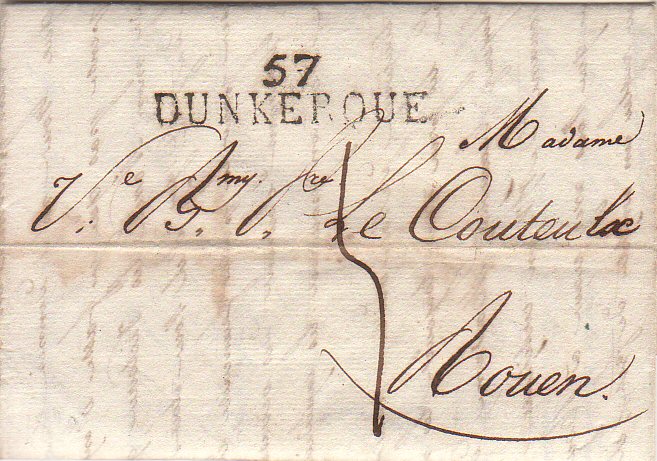 57
DUNKERQUE
Madame
V.e B.my. fre Le Couteulx
Rouen.